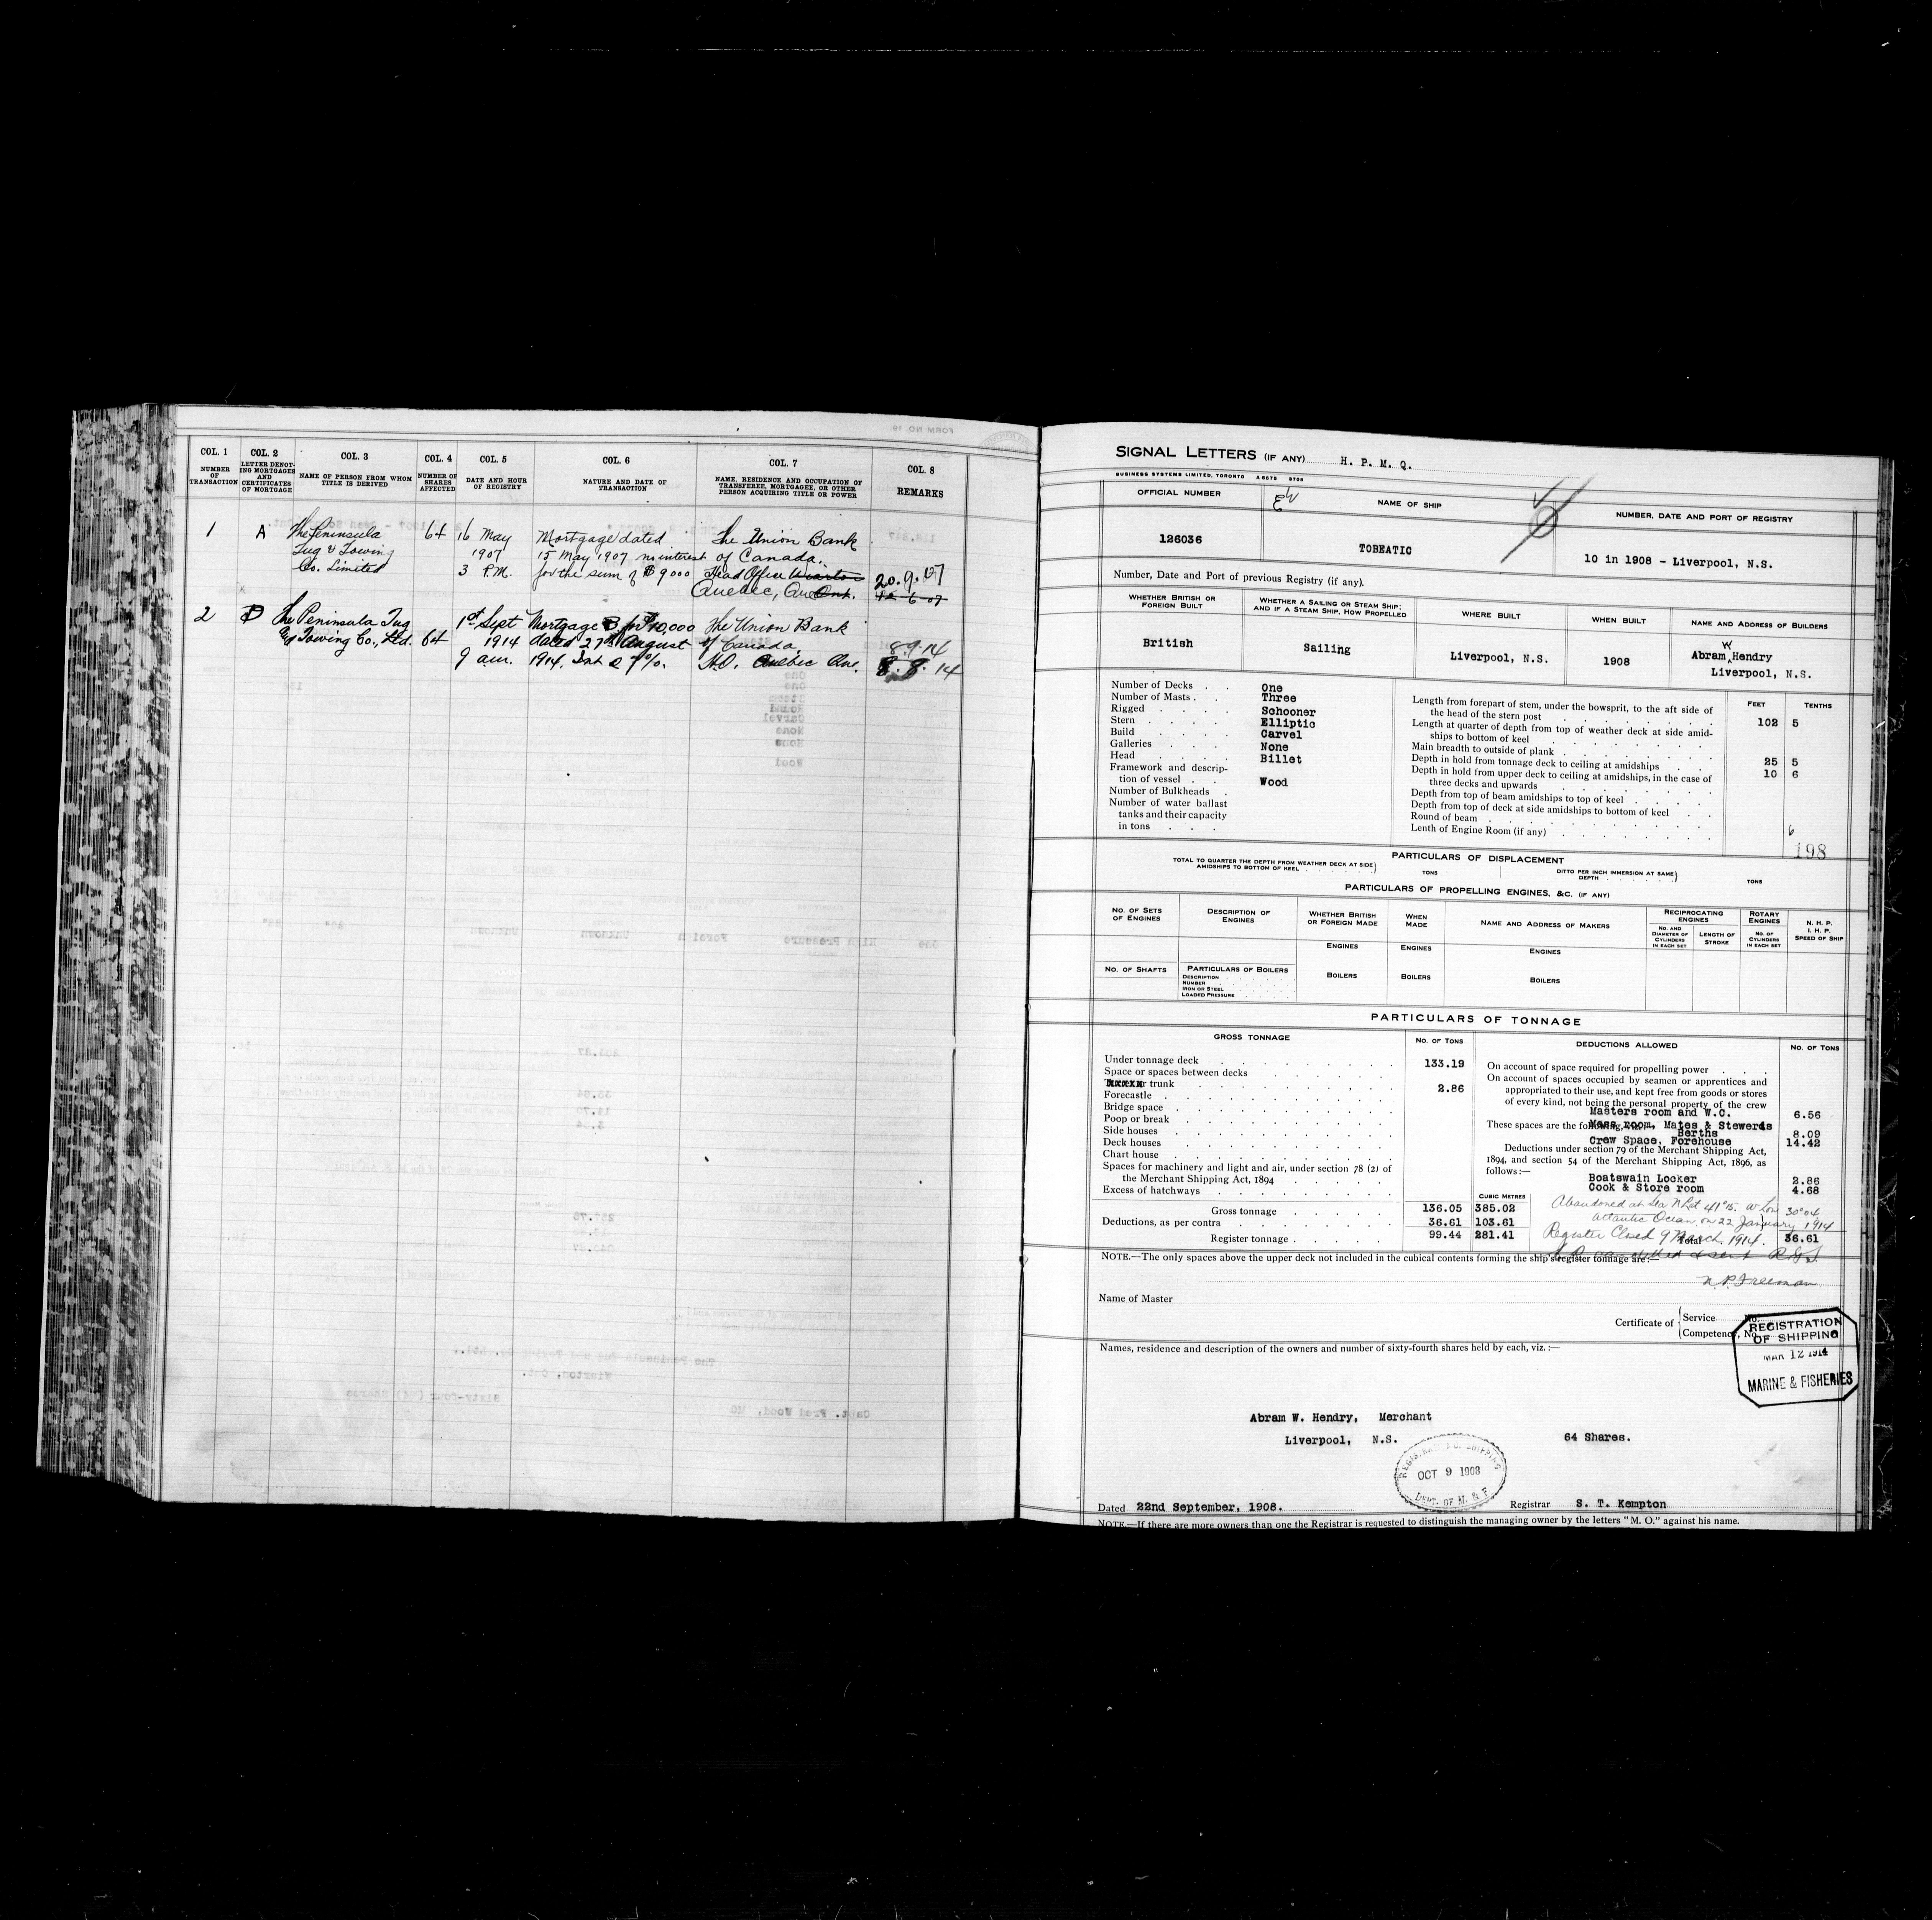 COL. 1
NUMBER
OF
TRANSACTION
COL. 2
LETTER DENOT-
ING MORTGAGES
AND
CERTIFICATES
OF MORTGAGE
COL. 3
NAME OF PERSON FROM WHOM
TITLE IS DERIVED
COL. 4
NUMBER OF
SHARES
AFFECTED
COL. 5
DATE AND HOUR
OF REGISTRY
COL. 6
NATURE AND DATE OF
TRANSACTION
COL. 7
NAME, RESIDENCE AND OCCUPATION OF
TRANSFEREE, MORTGAGEE, OR OTHER
PERSON ACQUIRING TITLE OR POWER
COL. 8
REMARKS
1
A
The Peninsula
Tug & Towing
Co. Limited
64
16 May
1907
3 P.M.
Mortgage dated
15 May 1907 no interest
for the sum of $9000
The Union Bank
of Canada.
Head Office Wiarton
Quebec, Que Ont.
20.9.07
12 6 07
2
The Peninsula Tug
& Towing Co., Ltd.
64
1st Sept
1914
9 am.
Mortgage B for $10,000
dated 27th August
1914. Int @ 7%.
The Union Bank
of Canada,
H.O. Quebec Que.
8.9.14
8. 8. 14
SIGNAL LETTERS (IF ANY) H. P. M. Q.
BUSINESS SYSTEMS LIMITED, TORONTO
OFFICIAL NUMBER
126036
NAME OF SHIP
TOBEATIC
NUMBER, DATE AND PORT OF REGISTRY
10 in 1908 - Liverpool, N.S.
Number, Date and Port of previous Registry (if any).
WHETHER BRITISH OR
FOREIGN BUILT
British
WHETHER A SAILING OR STEAM SHIP;
AND IF A STEAM SHIP, HOW PROPELLED
Sailing
WHERE BUILT
Liverpool, N.S.
WHEN BUILT
1908
NAME AND ADDRESS OF BUILDERS
W
Abram Hendry
Liverpool, N.S.
Number of Decks One
Number of Masts Three
Rigged Schooner
Stern Elliptic
Build Carvel
Galleries None
Head Billet
Framework and descrip-
tion of vessel Wood
Number of Bulkheads
Number of water ballast
tanks and their capacity
in tons
FEET
TENTHS
Length from forepart of stem, under the bowsprit, to the aft side of
the head of the stern post 102 5
Length at quarter of depth from top of weather deck at side amid-
ships to bottom of keel
Main breadth to outside of plank 25 5
Depth in hold from tonnage deck to ceiling at amidships 10 6
Depth in hold from upper deck to ceiling at amidships, in the case of
three decks and upwards
Depth from top of beam amidships to top of keel
Depth from top of deck at side amidships to bottom of keel
Round of beam
Lenth of Engine Room (if any)
6
198
PARTICULARS OF DISPLACEMENT
TOTAL TO QUARTER THE DEPTH FROM WEATHER DECK AT SIDE
AMIDSHIPS TO BOTTOM OF KEEL
TONS
DITTO PER INCH IMMERSION AT SAME
DEPTH
TONS
PARTICULARS OF PROPELLING ENGINES, &C. (IF ANY)
NO. OF SETS
OF ENGINES
DESCRIPTION OF
ENGINES
WHETHER BRITISH
OR FOREIGN MADE
WHEN
MADE
NAME AND ADDRESS OF MAKERS
RECIPROCATING
ENGINES
NO. AND
DIAMETER OF
CYLINDERS
IN EACH SET
LENGTH OF
STROKE
ROTARY
ENGINES
NO. OF
CYLINDERS
IN EACH SET
N. H. P.
I. H. P.
SPEED OF SHIP
ENGINES
ENGINES
ENGINES
NO. OF SHAFTS
PARTICULARS OF BOILERS
DESCRIPTION
NUMBER
IRON OR STEEL
LOADED PRESSURE
BOILERS
BOILERS
BOILERS
PARTICULARS OF TONNAGE
GROSS TONNAGE
NO. OF TONS
Under tonnage deck 133.19
Space or spaces between decks
trunk 2.86
Forecastle
Bridge space
Poop or break
Side houses
Deck houses
Chart house
Spaces for machinery and light and air, under section 78 (2) of
the Merchant Shipping Act, 1894
Excess of hatchways
CUBIC METRES
Gross tonnage 136.05 385.02
Deductions, as per contra 36.61 103.61
Register tonnage 99.44 281.41
DEDUCTIONS ALLOWED
NO. OF TONS
On account of space required for propelling power
On account of spaces occupied by seamen or apprentices and
appropriated to their use, and kept free from goods or stores
of every kind, not being the personal property of the crew
Masters room and W.C. 6.56
These spaces are the following, viz.:—
Mess room, Mates & Stewerds
Berths 8.09
Crew Space, Forehouse 14.42
Deductions under section 79 of the Merchant Shipping Act,
1894, and section 54 of the Merchant Shipping Act, 1896, as
follows:—
Boatswain Locker 2.86
Cook & Store room 4.68
Abandoned at Sea N Lat 41°15. W Lon 30°04
Atlantic Ocean, on 22 January 1914
Register Closed 9 March, 1914.
Total 36.61
NOTE.—The only spaces above the upper deck not included in the cubical contents forming the ship's register tonnage are:—
N. P. Freeman
Name of Master
Certificate of
Service No.
Competency, No.
REGISTRATION
OF SHIPPING
MAR 12 1914
MARINE & FISHERIES
Names, residence and description of the owners and number of sixty-fourth shares held by each, viz.:—
Abram W. Hendry, Merchant
Liverpool, N.S. 64 Shares.
REGISTRATION OF SHIPPING
OCT 9 1908
DEPT. OF M. & F.
Dated 22nd September, 1908. Registrar S. T. Kempton
NOTE.—If there are more owners than one the Registrar is requested to distinguish the managing owner by the letters "M. O." against his name.